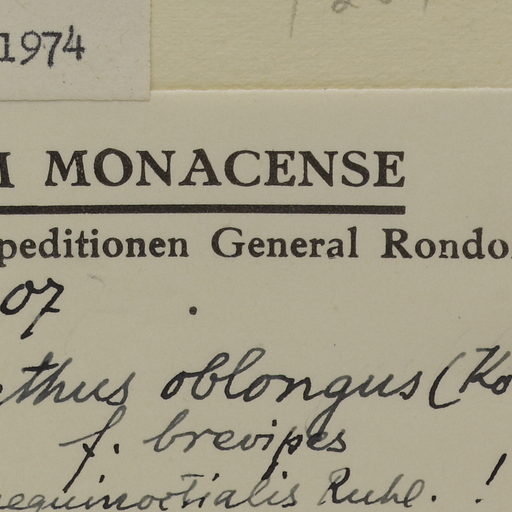 1974
M MONACENSE
peditionen General Rondo
07
thus oblongus (Ko
f. brevipes
aequinoctialis Ruhl. !